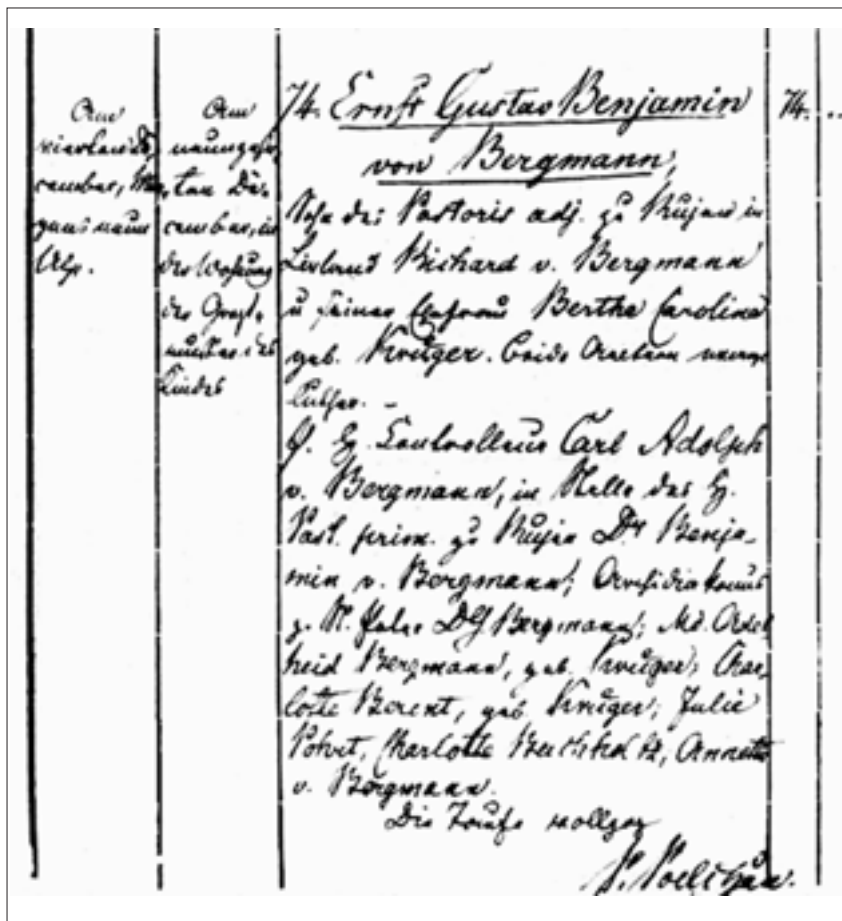 Am
vierten De-
cember, Mor-
gens neun
Uhr.
Am
neunzehn-
ten De-
cember, in
der Wohnung
der Groß-
mutter des
Kindes
74. Ernst Gustav Benjamin 74.
von Bergmann,
Sohn des Pastoris adj. zu Rujen in
Livland Richard v. Bergmann
u seiner Ehefrau Bertha Carolina
geb. Krüger. Beide Aeltern
luther. –
G. H. Controlleur Carl Adolph
v. Bergmann, in Stelle des H.
Past. prim. zu Rujen Dr Benja-
min v. Bergmann; Archidiakonus
z. St. Petri Bergmann; Md. Adel-
heid Bergmann, geb. Krüger; Char-
lotte Berent, geb. Krüger; Julie
Charlotte Annette
v. Bergmann.
Die Taufe vollzog
P. Poelchau.